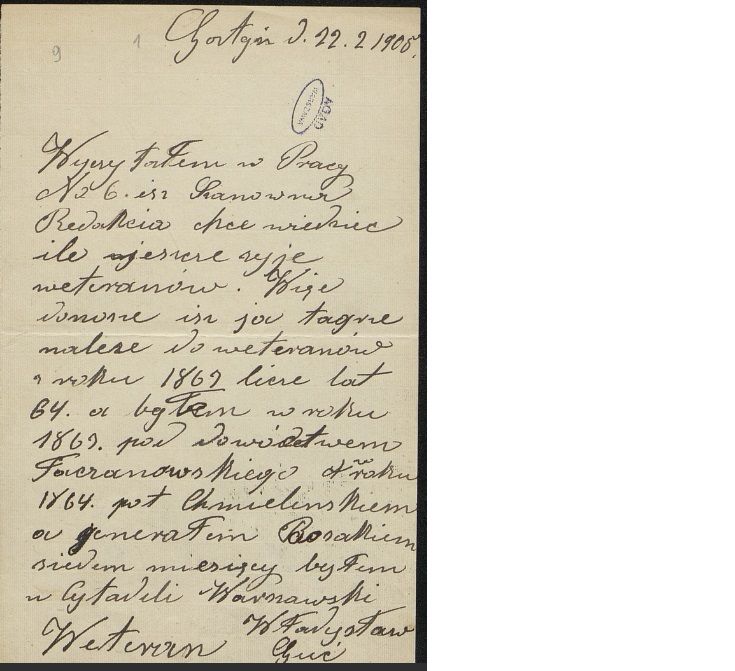 d. 22. 2 1905.
9 1
AGAD
WARSZAWA
Wyczytałem w Pracy
No 6. isz Szanowna
Redakcia chce wiedziec
ile jeszcze zyje
weteranów. Więc
donosze isz ja tagrze
nalese do weteranów
z roku 1863 licze lat
64. a byłem w roku
1863. pod dowództwem
Taczanowskiego w roku
1864. pot Chmielinskiem
a generałem Bosakiem
siedem miesięcy byłem
w Cytadeli Warszawski
Weteran Władysław